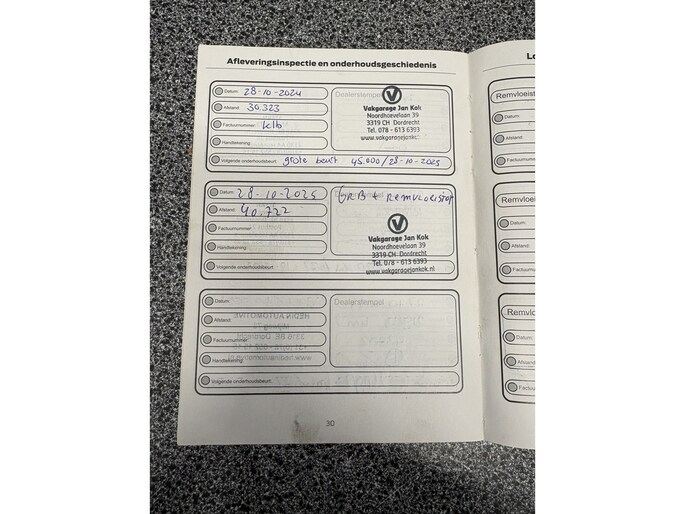 Afleveringsinspectie en onderhoudsgeschiedenis
Datum: 28-10-2024
Afstand: 30.323
Factuurnummer: klb
Handtekening:
Volgende onderhoudsbeurt: grote beurt 45.000/28-10-2025
Dealerstempel
Vakgarage Jan Kok
Noordhoevelaan 39
3319 CH Dordrecht
Tel. 078 - 613 6393
www.vakgaragejankok
Datum: 28-10-2025
Afstand: 40.722
Factuurnummer:
Handtekening:
Volgende onderhoudsbeurt:
GRB + REMVLOEISTOF
Vakgarage Jan Kok
Noordhoevelaan 39
3319 CH Dordrecht
Tel. 078 - 613 6393
www.vakgaragejankok.nl
Datum:
Afstand:
Factuurnummer:
Handtekening:
Volgende onderhoudsbeurt:
Dealerstempel
30
Lo
Remvloeist
Datum:
Afstand:
Factuurnum
Remvloei
Datum:
Afstand:
Factuurn
Remvlo
Datum:
Afstand
Factu